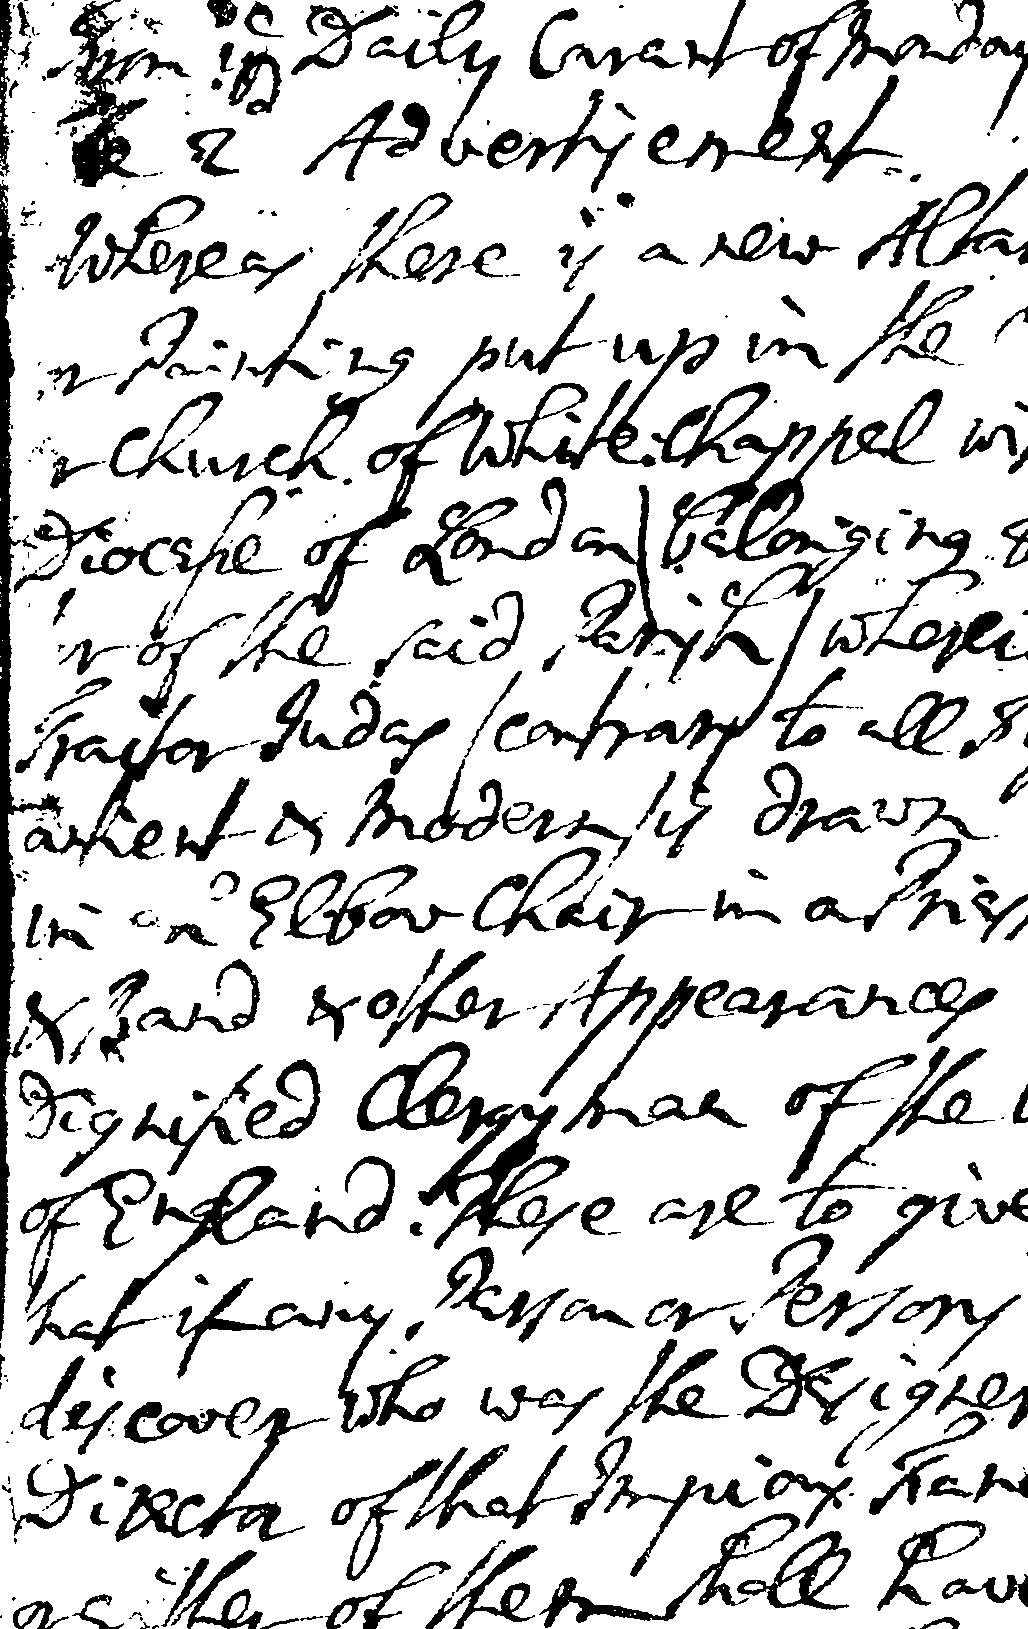 from ye Daily Courant of Monday
Advertisement.
Whereas there is a new Altar
or Painting put up in the
r Church of White: Chappel wi
Diocesse of London (belonging
r of the said Parish) wherei
Traitor Judas (contrary to all
antient & Modern) is drawn
in an Elbow Chair in a Pries
& Band & other Appearances
Dignified Clergyman of the
of England. These are to give
hat if any Person or Persons
discover who was the Designer
Director of that Impious
or either of them shall have